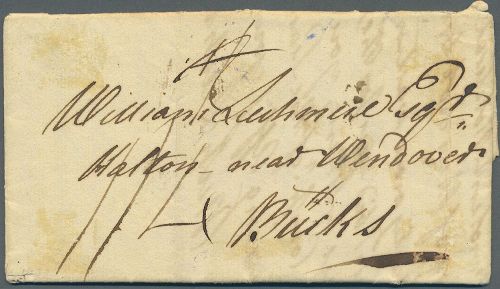 William Lechmere Esqr
Halton near Wendover
Bucks